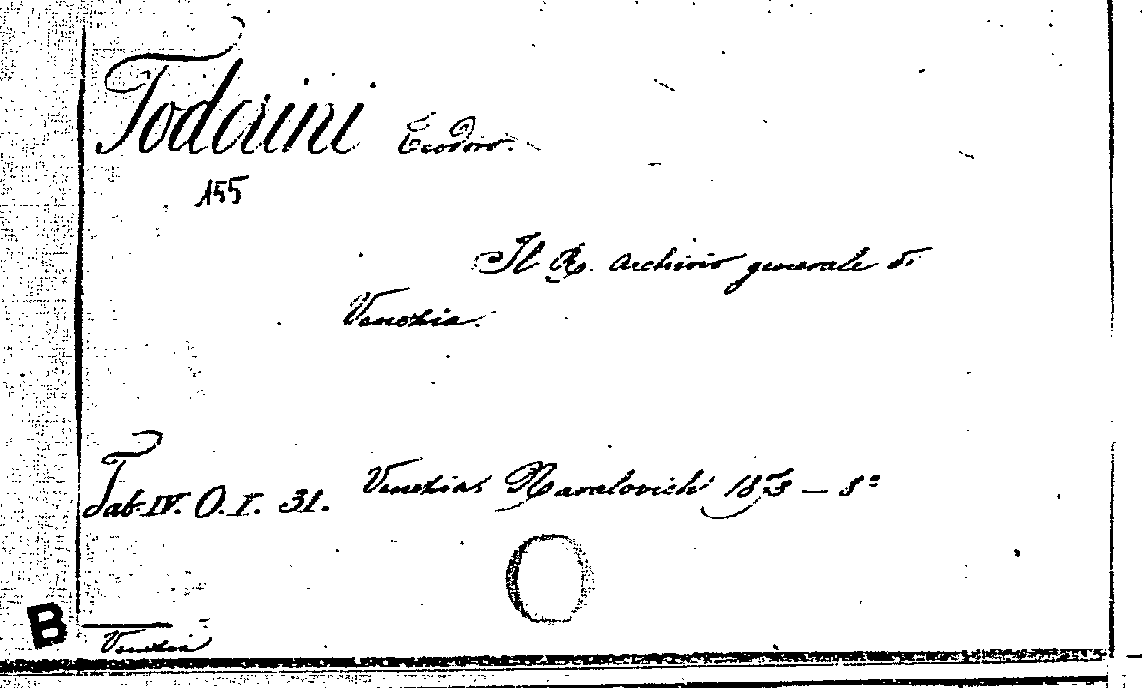 Toderini Teodoro.
155
Il R. Archivio generale di
Venezia.
Tab. IV. O. I. 31. Venezia, Naratovich 1873 – 8º
B
Venezia